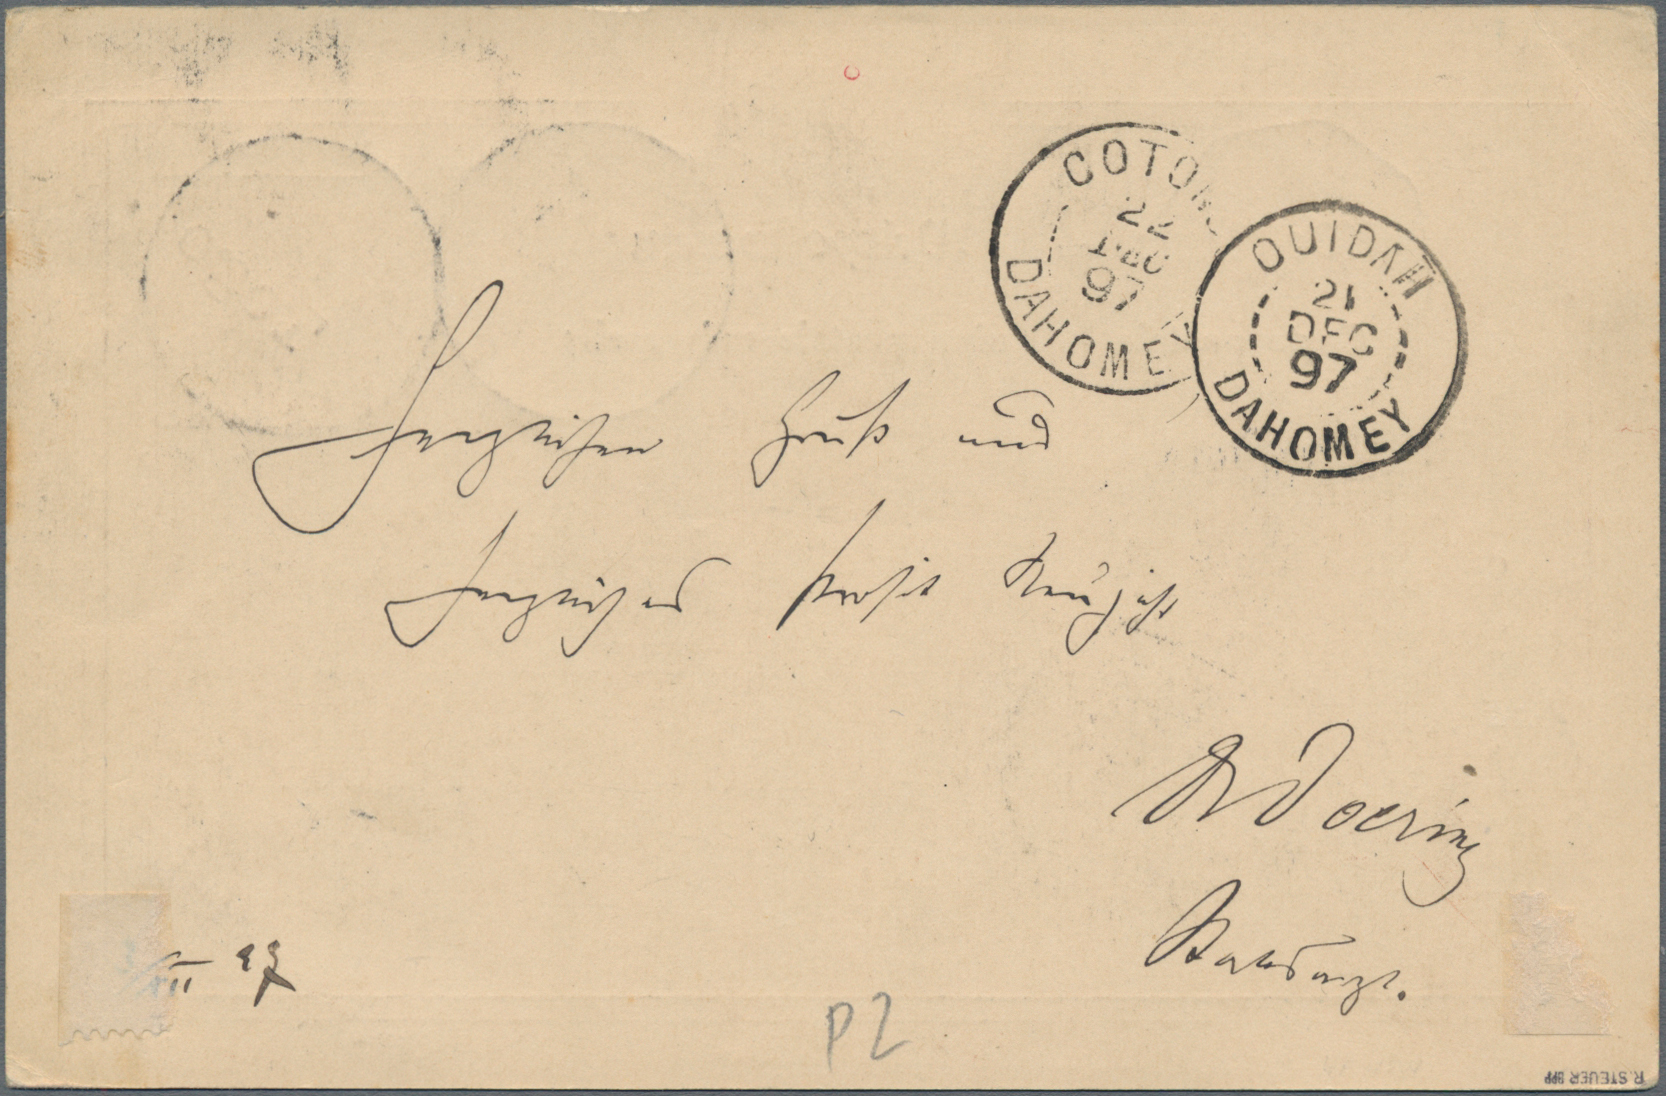 COTON
22
DEC
97
DAHOMEY
OUIDAH
21
DEC
97
DAHOMEY
Herzlichen Gruß und
herzliches Prosit Neujahr
Dr Doering
Stabsarzt.
XII 97
P2
R. STEUER BPP